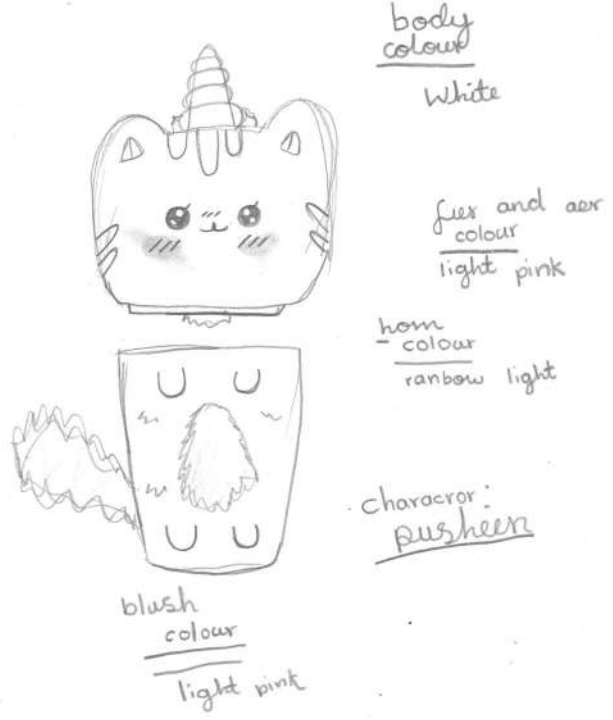 body
colour
White
fur and aer
colour
light pink
horn
colour
ranbow light
characror:
pusheen
blush
colour
light pink